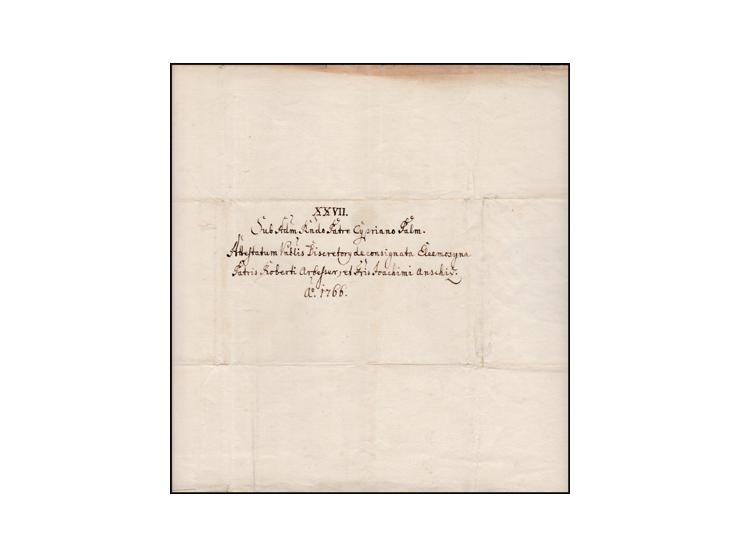 XXVII.
Sub Adm Rndo Patre Cypriano Palm.
Attestatum Vnblis Discretorÿ de consignata Eleemosyna
Patris Roberti Arbesser, et Fris Joachimi Anschiz.
Aº. 1766.